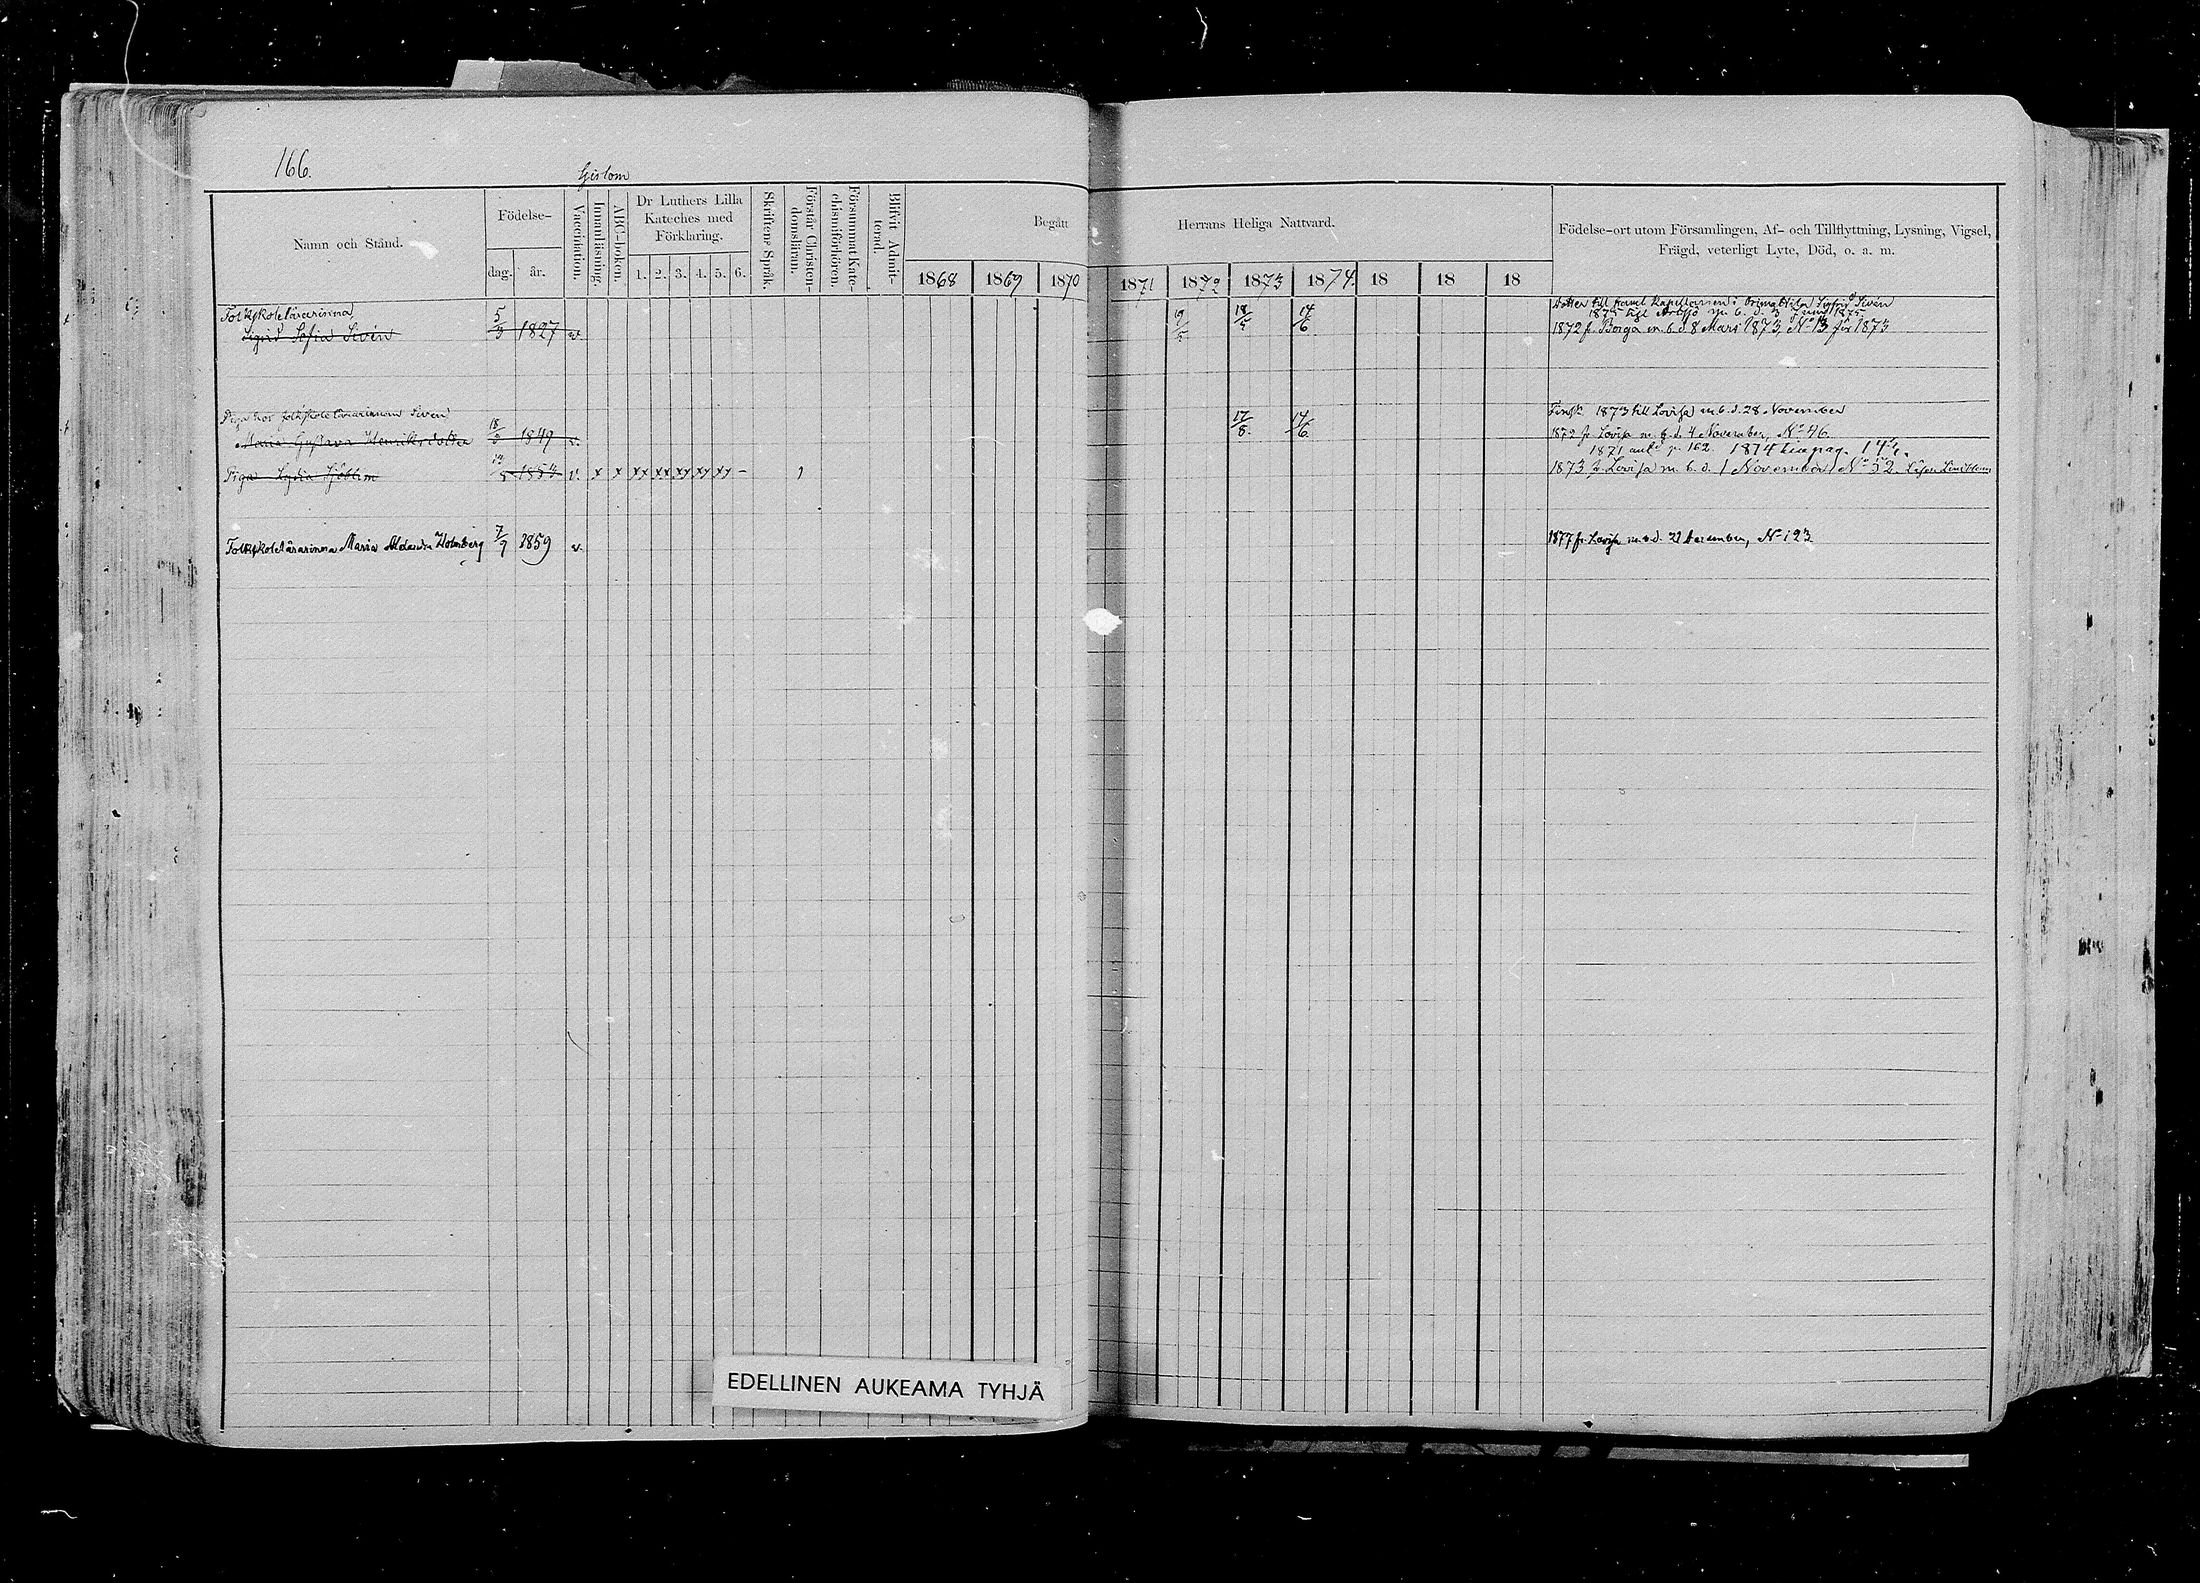 166.
Gislom
Namn och Stånd.
Födelse-
dag.
år.
Vaccination.
Innanläsning.
ABC-boken.
Dr Luthers Lilla
Kateches med
Förklaring.
1. 2. 3. 4. 5. 6.
Skriftens Språk.
Förstår Christen-
domsläran.
Försummat Kate-
chismiförhören.
Blifvit Admit-
terad.
Begått
Herrans Heliga Nattvard.
1868 1869 1870 1871 1872 1873 1874. 18 18 18
Födelse-ort utom Församlingen, Af- och Tillflyttning, Lysning, Vigsel,
Frägd, veterligt Lyte, Död, o. a. m.
Folkskolelärarinna
Sigrid Sofia Sivén 5/3 1827 v. 19/5 18/5 14/6
Dotter till framl Kapellanen i Orimattila Sigfrid Sivén
1875 till Artsjö m. b. d. 3 Juni 1875
1872 fr. Borgå m. b. d. 8 Mars 1873 No 13 för 1873
Piga hos folkskolelärarinnan Sivén
Maria Gustava Henriksdotter 18/3 1849 v. 17/8. 14/6
Finsk 1873 till Lovisa m. b. d. 28 November
1872 fr. Lovisa m. b. d. 4 November, No 46.
1871 p. 162. 1874 pag. 142.
Piga Lydia Sjöblom 1854 v. x x xx xx xy xy xy –
1873 fr. Lovisa m. b. d. 1 November No 52.
Folkskolelärarinna Maria Alexandra Holmberg 7/9 1859 v.
1877 fr. Lovisa m. b. d. 22 December, No 123
EDELLINEN AUKEAMA TYHJÄ